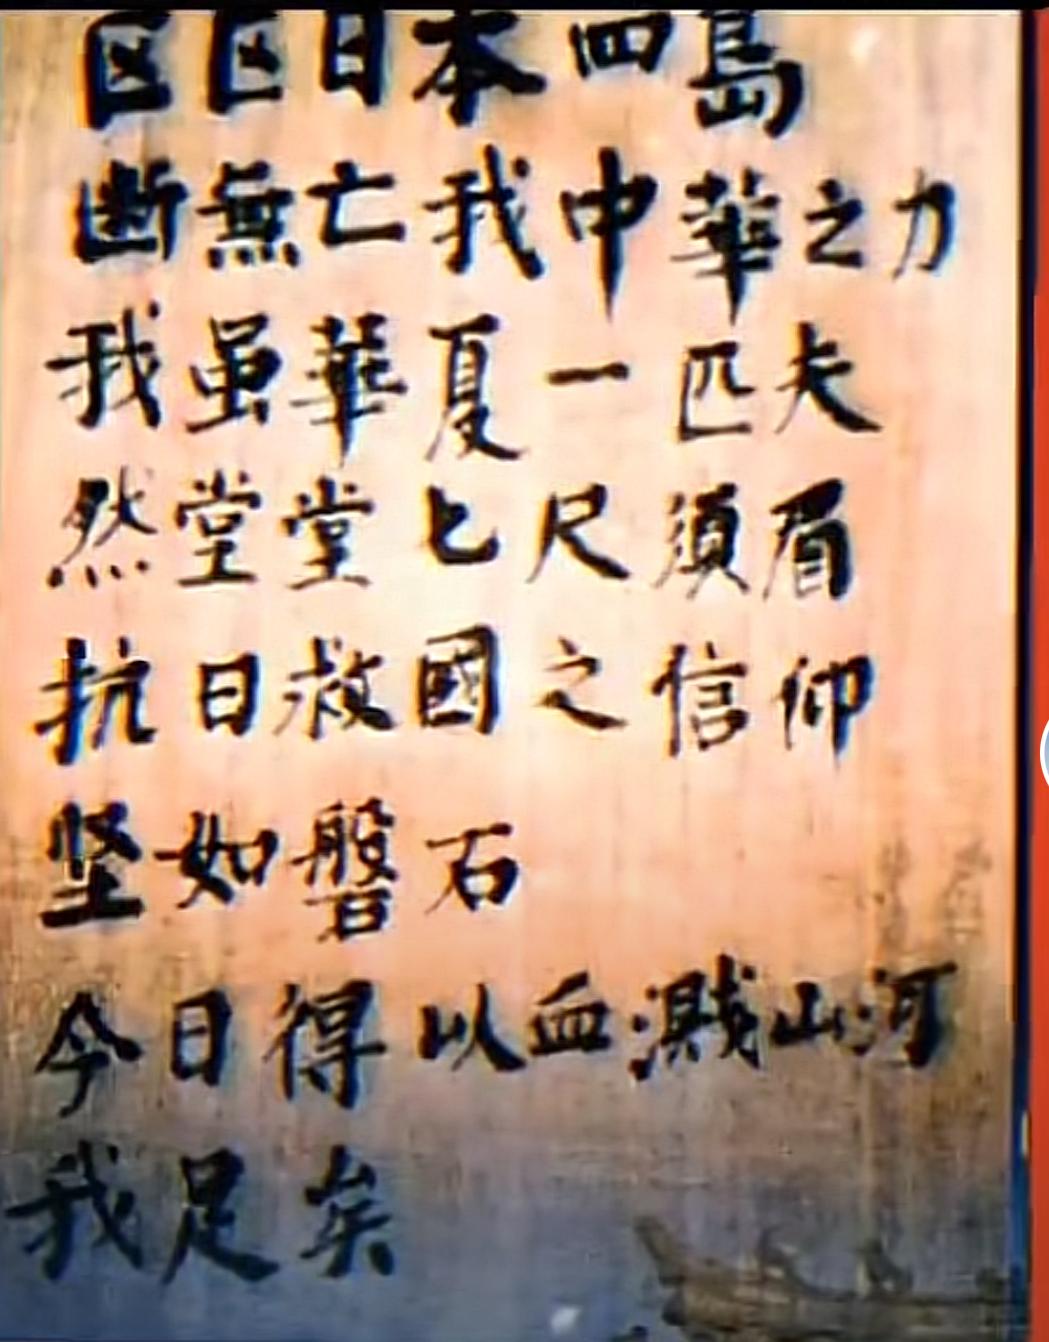 区区日本四島
断無亡我中華之力
我虽華夏一匹夫
然堂堂七尺須眉
抗日救國之信仰
坚如磐石
今日得以血濺山河
我足矣